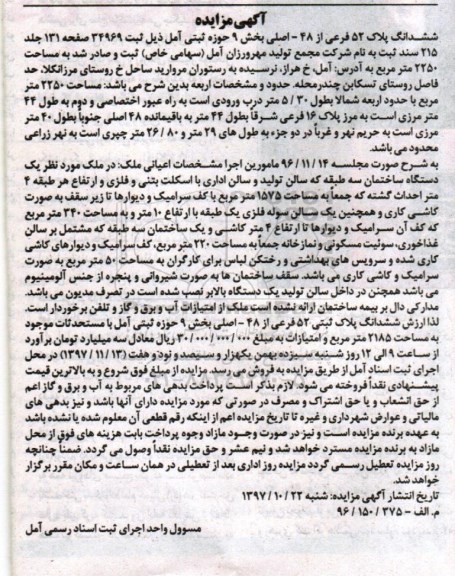 آگهی مزایده
ششدانگ پلاک ۵۲ فرعی از ۴۸ - اصلی بخش ۹ حوزه ثبتی آمل ذیل ثبت ۳۴۹۶۹ صفحه ۱۳۱ جلد
۲۱۵ سند ثبت به نام شرکت مجمع تولید مهرورزان آمل (سهامی خاص) ثبت و صادر شد به مساحت
۲۲۵۰ متر مربع به آدرس: آمل، خ هراز، نرسیده به رستوران مروارید ساحل خ روستای مرزانکلا، حد
فاصل روستای تسکابن چندرمحله. حدود و مشخصات اربعه بدین شرح می باشد: مساحت ۲۲۵۰ متر
مربع با حدود اربعه شمالا بطول ۳۰ / ۵ متر درب ورودی است به راه عبور اختصاصی و دوم به طول ۴۴
متر مرزی است به مرز پلاک ۱۶ فرعی شرقاً بطول ۴۴ متر به باقیمانده ۴۸ اصلی جنوباً بطول ۴۰ متر
مرزی است به حریم نهر و غرباً در دو جزء به طول های ۲۹ متر و ۸۰ / ۲۶ متر چپری است به نهر زراعی
محدود می باشد.
به شرح صورت مجلسه ۱۴ / ۱۱ / ۹۶ مامورین اجرا مشخصات اعیانی ملک: در ملک مورد نظر یک
دستگاه ساختمان سه طبقه که سالن تولید و سالن اداری با اسکلت بتنی و فلزی و ارتفاع هر طبقه ۴
متر احداث گشته که جمعاً به مساحت ۱۵۷۵ متر مربع با کف سرامیک و دیوارها تا زیر سقف به صورت
کاشی کاری و همچنین یک سالن سوله فلزی یک طبقه با ارتفاع ۱۰ متر و به مساحت ۳۴۰ متر مربع
که کف آن سرامیک و دیوارها تا ارتفاع ۲ متر کاشی و یک ساختمان سه طبقه که مشتمل بر سالن
غذاخوری، سوئیت مسکونی و نمازخانه جمعاً به مساحت ۲۲۰ متر مربع، کف سرامیک و دیوارهای کاشی
کاری شده و سرویس های بهداشتی و رختکن لباس برای کارگران به مساحت ۵۰ متر مربع به صورت
سرامیک و کاشی کاری می باشد. سقف ساختمان ها به صورت شیروانی و پنجره از جنس آلومینیوم
می باشد همچنن در داخل سالن تولید یک دستگاه بالابر نصب شده است در تصرف مدیون می باشد.
مدارکی دال بر بیمه ساختمان ارائه نشده است ملک از امتیازات آب و برق و گاز و تلفن برخوردار است.
لذا ارزش ششدانگ پلاک ثبتی ۵۲ فرعی از ۴۸ - اصلی بخش ۹ حوزه ثبتی آمل با مستحدثات موجود
به مساحت ۲۱۸۵ متر مربع و امتیازات به مبلغ ۰۰۰ / ۰۰۰ / ۰۰۰ / ۳۰ ریال معادل سه میلیارد تومان برآورد
از ساعت ۹ الی ۱۲ روز شنبه سیزده بهمن یکهزار و سیصد و نود و هفت (۱۳ / ۱۱ / ۱۳۹۷) در محل
اجرای ثبت اسناد آمل از طریق مزایده به فروش می رسد. مزایده از مبلغ فوق شروع و به بالاترین قیمت
پیشنهادی نقداً فروخته می شود. لازم بذکر است پرداخت بدهی های مربوط به آب و برق و گاز اعم
از حق انشعاب و یا حق اشتراک و مصرف در صورتی که مورد مزایده دارای آنها باشد و نیز بدهی های
مالیاتی و عوارض شهرداری و غیره تا تاریخ مزایده اعم از اینکه رقم قطعی آن معلوم شده یا نشده باشد
به عهده برنده مزایده است و نیز در صورت وجود مازاد وجوه پرداخت بابت هزینه های فوق از محل
مازاد به برنده مزایده مسترد خواهد شد و نیم عشر و حق مزایده نقداً وصول می گردد. ضمناً چنانچه
روز مزایده تعطیل رسمی گردد مزایده روز اداری بعد از تعطیلی در همان ساعت و مکان مقرر برگزار
خواهد شد.
تاریخ انتشار آگهی مزایده: شنبه ۲۲ / ۱۰ / ۱۳۹۷
م. الف - ۳۷۵ / ۱۵۰ / ۹۶
مسوول واحد اجرای ثبت اسناد رسمی آمل